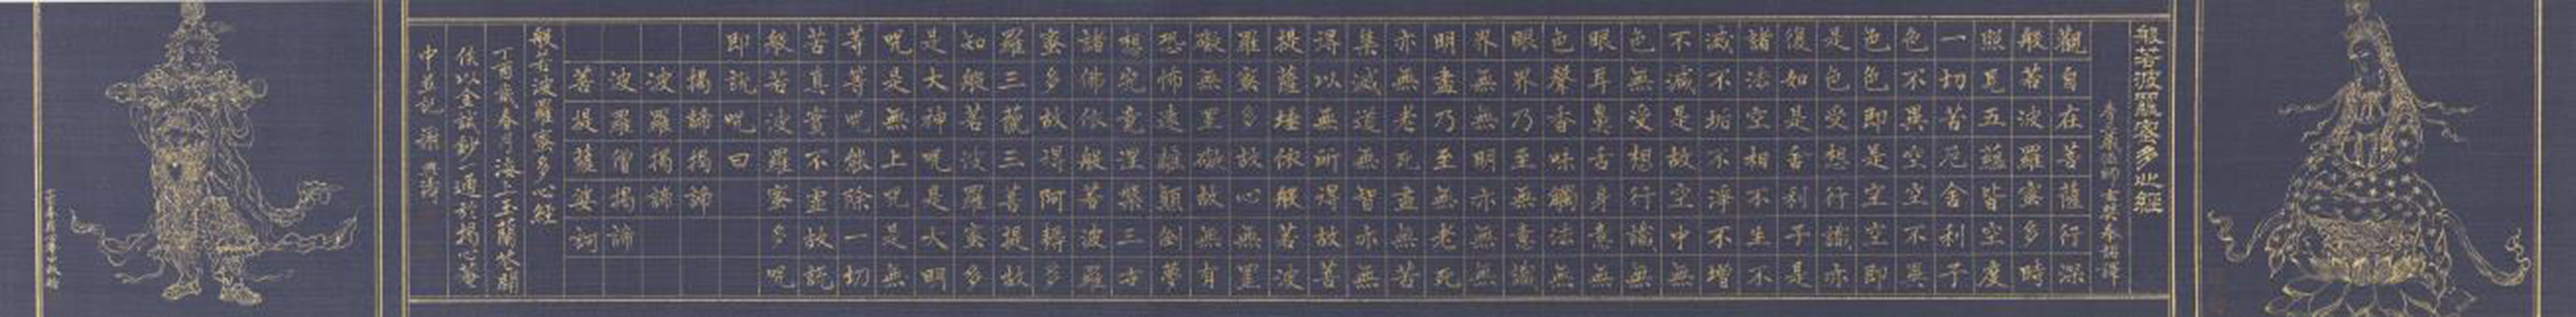 般若波羅蜜多心經
法師玄奘奉詔譯
觀自在菩薩行深
般若波羅蜜多時
照見五蘊皆空度
一切苦厄舍利子
色不異空空不異
色色即是空空即
是色受想行識亦
復如是舍利子是
諸法空相不生不
滅不垢不淨不增
不減是故空中無
色無受想行識無
眼耳鼻舌身意無
色聲香味觸法無
眼界乃至無意識
界無無明亦無無
明盡乃至無老死
亦無老死盡無苦
集滅道無智亦無
得以無所得故菩
提薩埵依般若波
羅蜜多故心無罣
礙無罣礙故無有
恐怖遠離顛倒夢
想究竟涅槃三世
諸佛依般若波羅
蜜多故得阿耨多
羅三藐三菩提故
知般若波羅蜜多
是大神呪是大明
呪是無上呪是無
等等呪能除一切
苦真實不虛故說
般若波羅蜜多呪
即說呪曰
揭諦揭諦
波羅揭諦
波羅僧揭諦
菩提薩婆訶
般若波羅蜜多心經
丁酉歲春月海上玉蘭花開
後以金試鈔一通於揭心菴
中並記